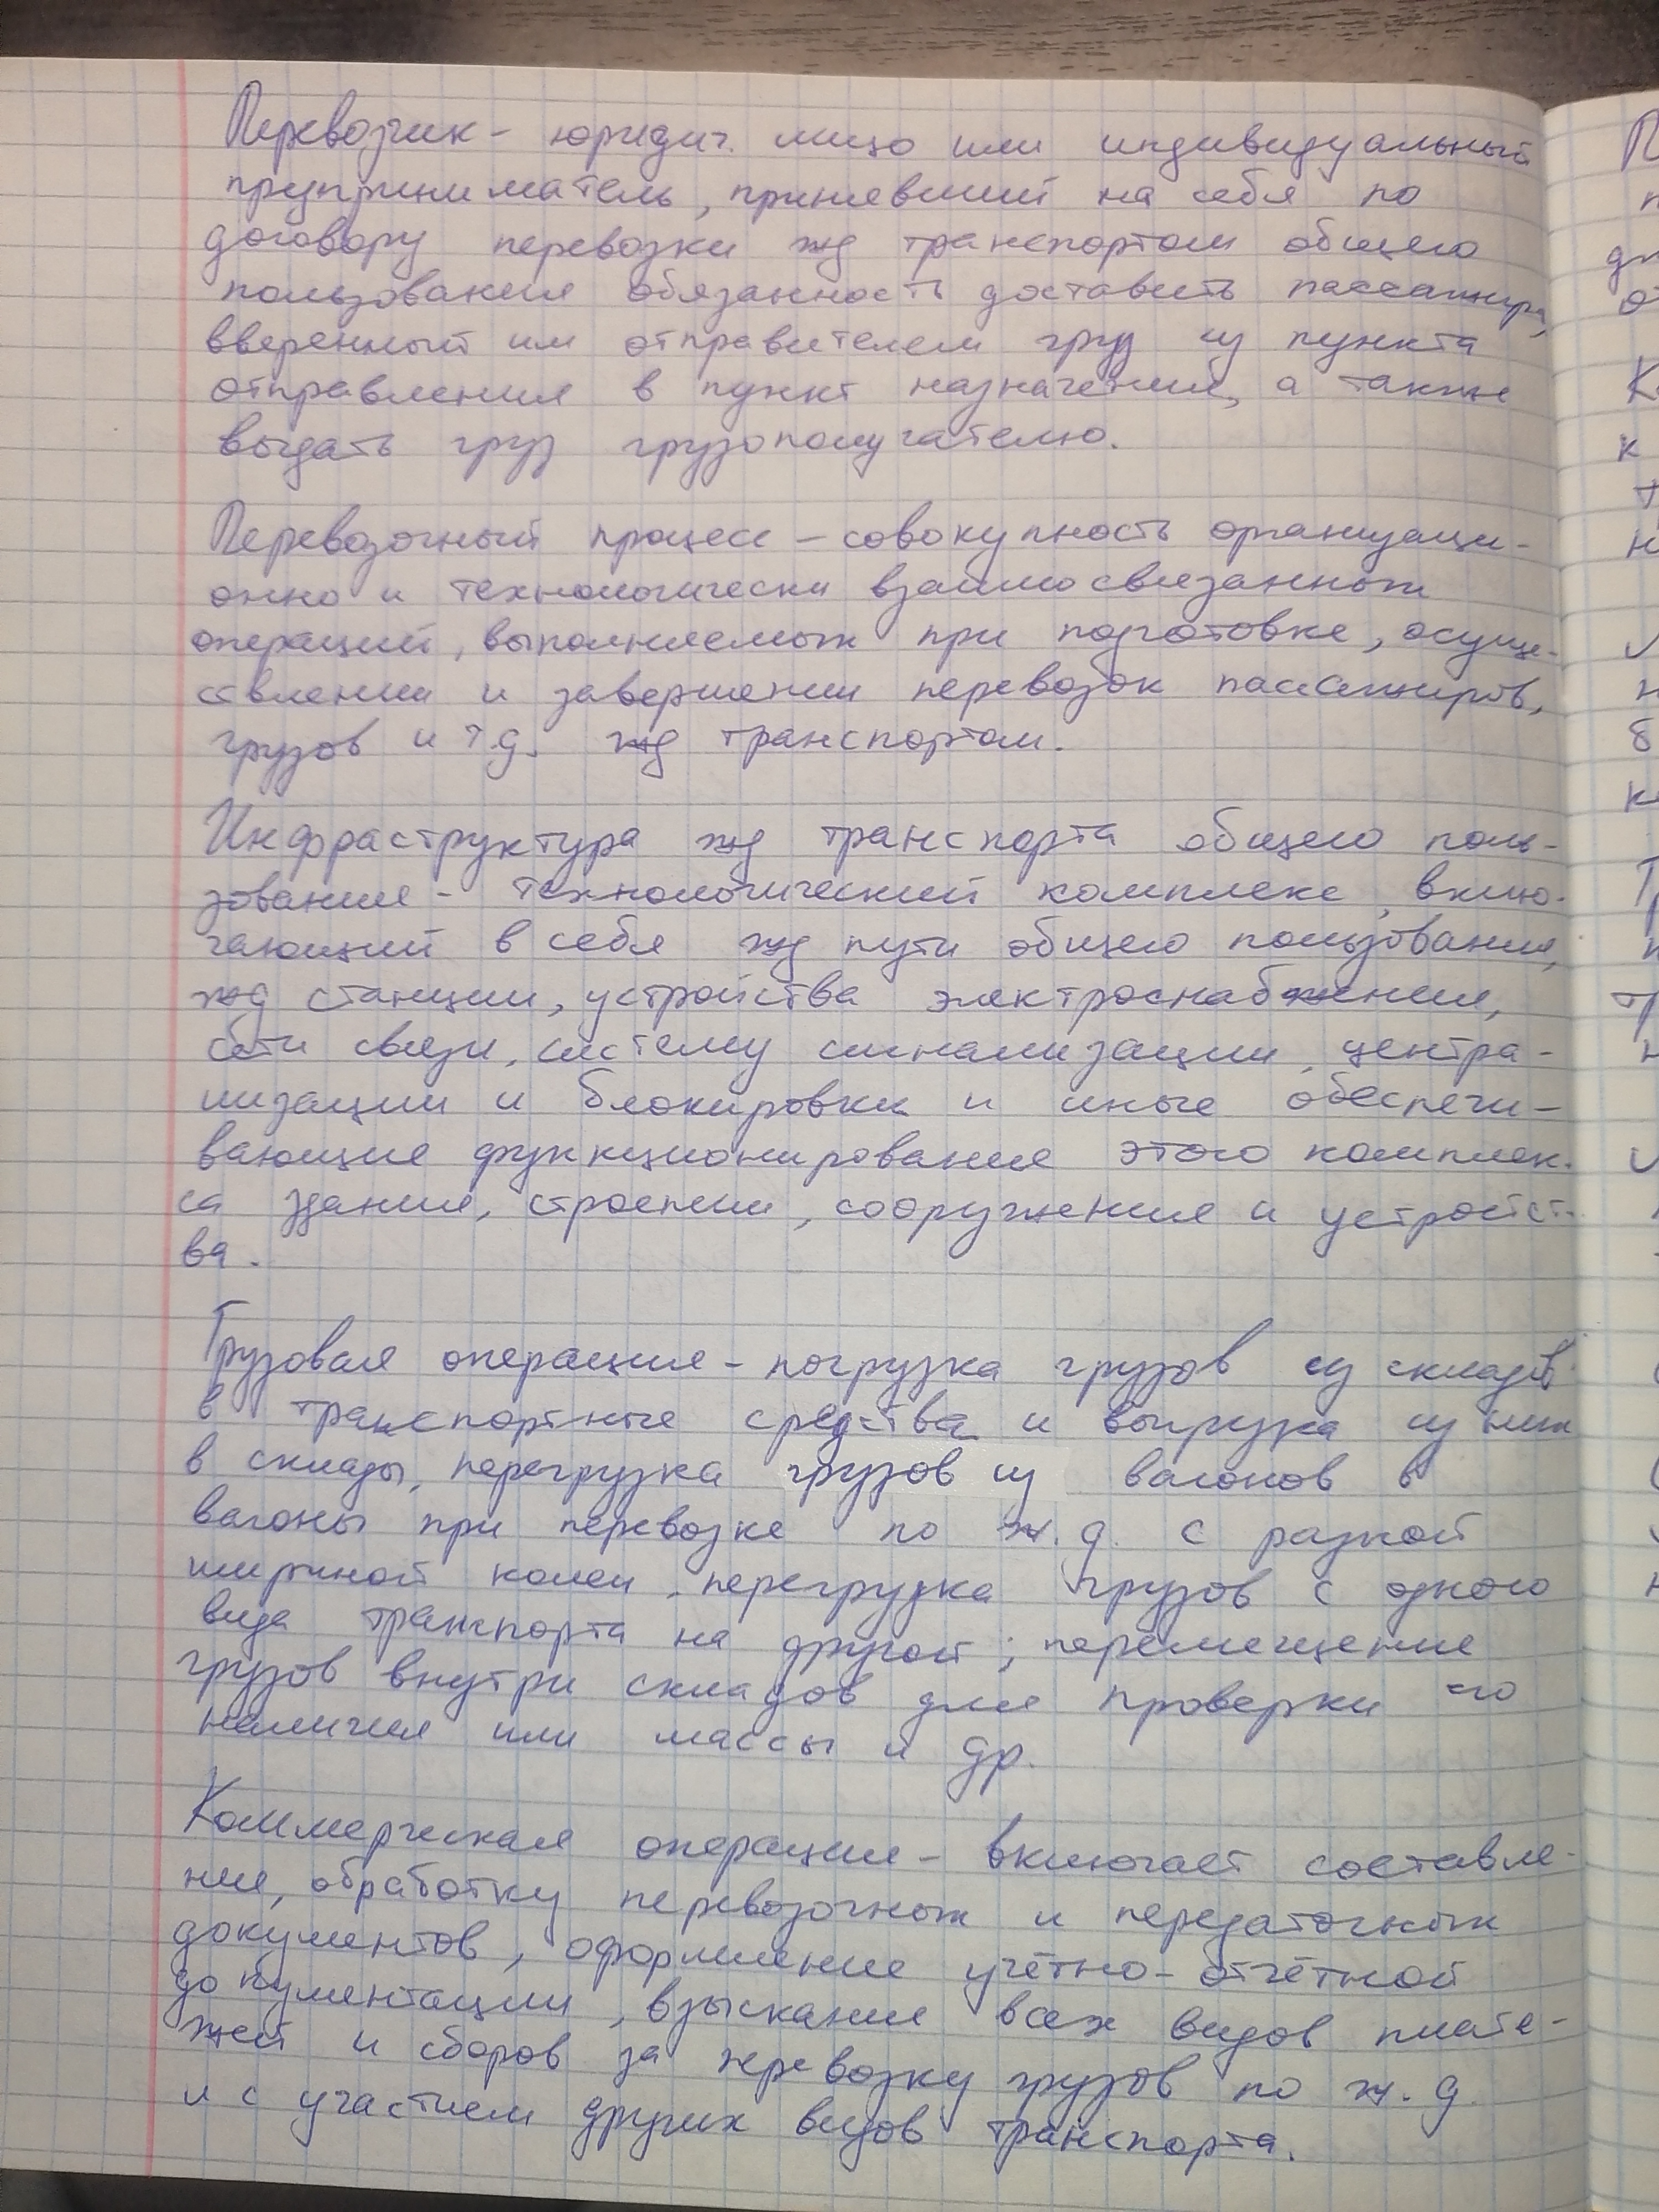 Перевозчик - юридич. лицо или индивидуальный
предприниматель, принявший на себя по
договору перевозки жд транспортом общего
пользования обязанность доставить пассажира,
вверенный им отправителем груз из пункта
отправления в пункт назначения, а также
выдать груз грузополучателю.
Перевозочный процесс - совокупность организаци-
онно и технологически взаимосвязанных
операций, выполняемых при подготовке, осуще-
ствлении и завершении перевозок пассажиров,
грузов и т.д. жд транспортом.
Инфраструктура жд транспорта общего поль-
зования - технологический комплекс, вклю-
чающий в себя жд пути общего пользования,
жд станции, устройства электроснабжения,
сети связи, систему сигнализации, центра-
лизации и блокировки и иные обеспечи-
вающие функционирование этого комплек-
са здания, строения, сооружения и устройст-
ва.
Грузовая операция - погрузка грузов из складов
в транспортные средства и выгрузка из них
в склады, перегрузка грузов из вагонов в
вагоны при перевозке по ж.д. с разной
шириной колеи, перегрузка грузов с одного
вида транспорта на другой; перемещение
грузов внутри складов для проверки его
наличия или массы и др.
Коммерческая операция - включает составле-
ние, обработку перевозочных и передаточных
документов, оформление учётно-отчётной
документации, взыскание всех видов плате-
жей и сборов за перевозку грузов по ж.д.
и с участием других видов транспорта.